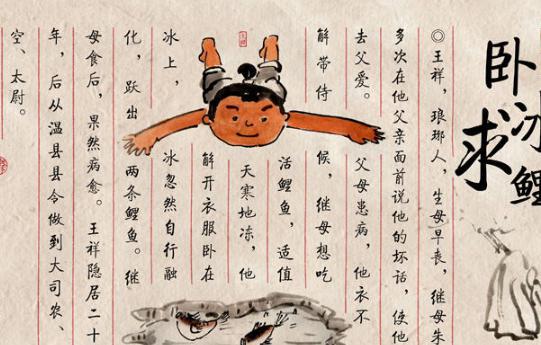 卧冰求鲤
◎王祥,琅琊人,生母早丧,继母朱
多次在他父亲面前说他的坏话,使他
去父爱。父母患病,他衣不
解带侍候,继母想吃
活鲤鱼,适值
天寒地冻,他
解开衣服卧在
冰上,冰忽然自行融
化,跃出两条鲤鱼。继
母食后,果然病愈。王祥隐居二十
年,后从温县县令做到大司农、
空、太尉。